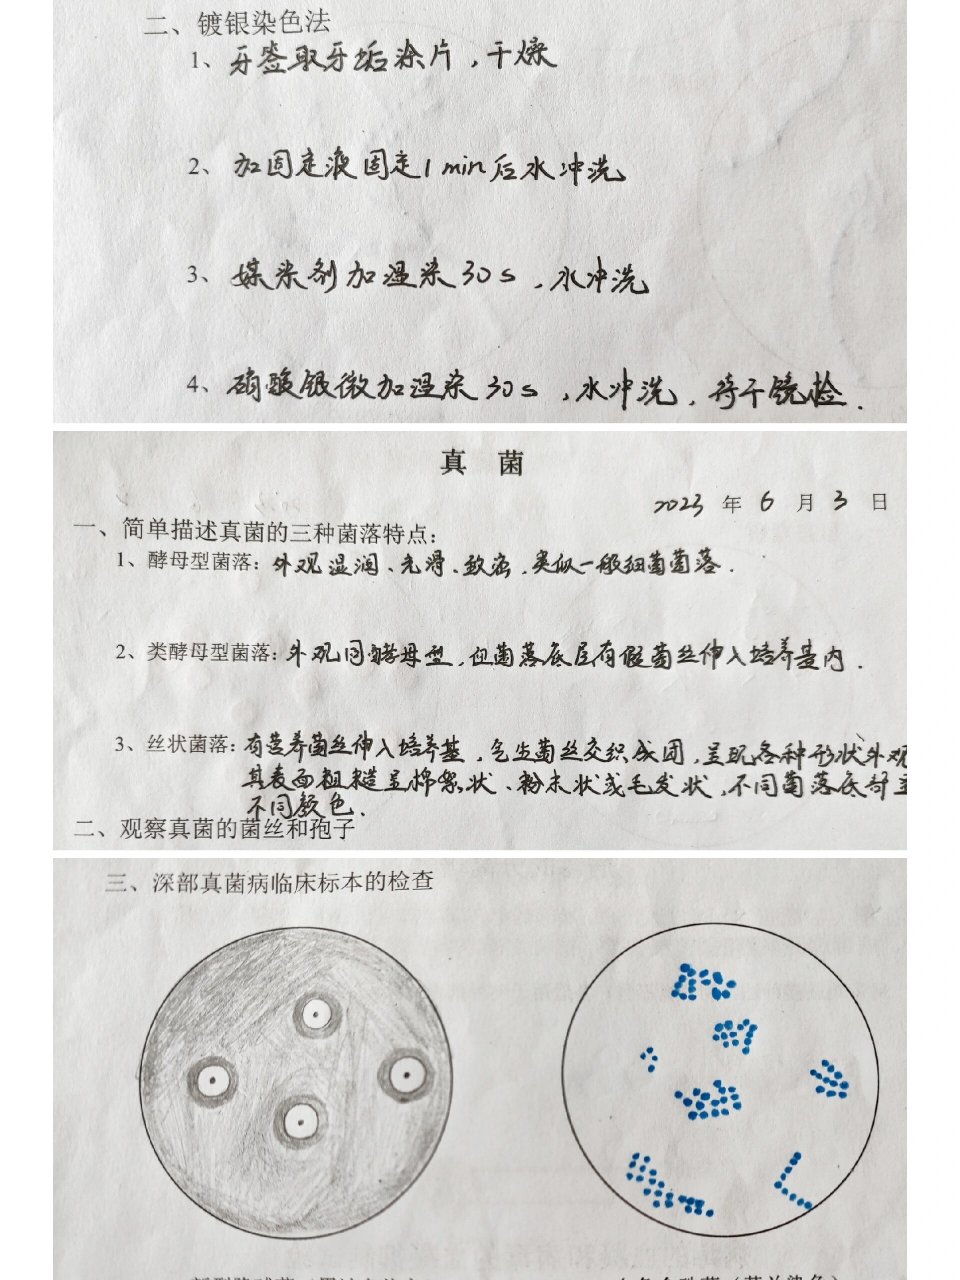 二、镀银染色法
1、牙签取牙垢涂片，干燥
2、加固定液固定1min后水冲洗
3、媒染剂加温染30s，水冲洗
4、硝酸银微加温染30s，水冲洗，待干镜检.
真 菌
2023 年 6 月 3 日
一、简单描述真菌的三种菌落特点：
1、酵母型菌落：外观湿润、光滑、致密，类似一般细菌菌落.
2、类酵母型菌落：外观同酵母型，但菌落底层有假菌丝伸入培养基内.
3、丝状菌落：有营养菌丝伸入培养基，气生菌丝交织成团，呈现各种形状外观
其表面粗糙呈棉絮状、粉末状或毛发状，不同菌落底部呈
不同颜色.
二、观察真菌的菌丝和孢子
三、深部真菌病临床标本的检查